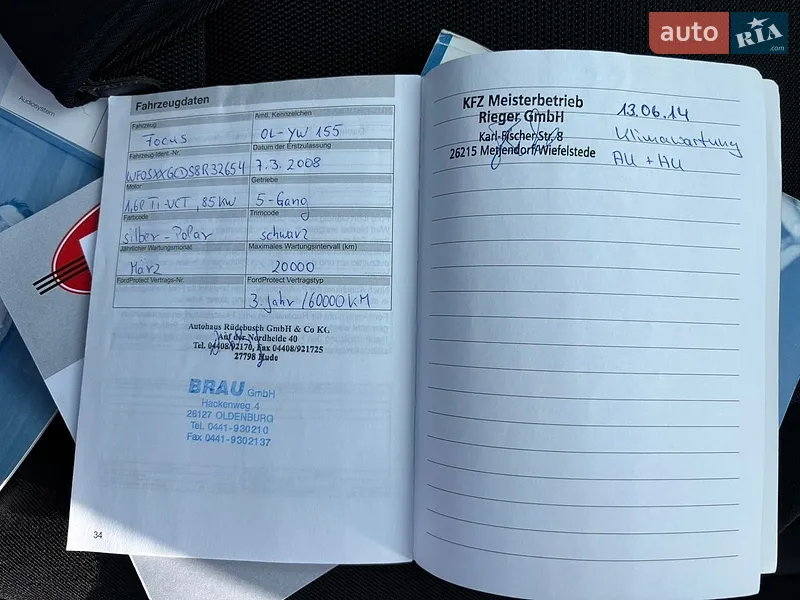 auto RIA .com
Audiosystem
Fahrzeugdaten
Fahrzeug
Focus
Amtl. Kennzeichen
OL-YW 155
Fahrzeug-Ident.-Nr.
WF0SXXGCDS8R32654
Datum der Erstzulassung
7.3.2008
Motor
1,6l Ti-VCT, 85 KW
Getriebe
5-Gang
Farbcode
silber-Polar
Trimcode
schwarz
Jährlicher Wartungsmonat
März
Maximales Wartungsintervall (km)
20000
FordProtect Vertrags-Nr.
FordProtect Vertragstyp
3. Jahr / 60000 KM
Autohaus Rüdebusch GmbH & Co KG
Auf der Nordheide 40
Tel. 04408/92170, Fax 04408/921725
27798 Hude
BRAU GmbH
Hackenweg 4
26127 OLDENBURG
Tel. 0441-930210
Fax 0441-9302137
34
KFZ Meisterbetrieb
Rieger GmbH
Karl-Fischer-Str. 8
26215 Metjendorf/Wiefelstede
13.06.14
Klimawartung
AU + HU